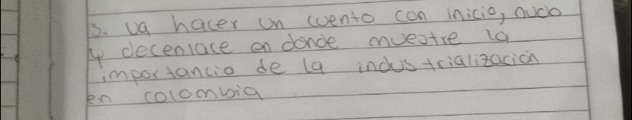 3. va hacer un cuento con inicio, nudo
y decenlace en donde muestre la
importancia de la industrialización
en colombia